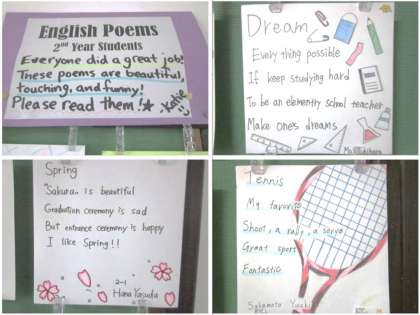 English Poems
2nd Year Students
Everyone did a great job!
These poems are beautiful,
touching, and funny!
Please read them! Katie
Dream
Every thing possible
If keep studying hard
To be an elementry school teacher
Make one's dreams
Spring
"Sakura" is beautiful
Graduation ceremony is sad
But entrance ceremony is happy
I like Spring!!
2-1
Hana Yasuda
Tennis
My favorite
Shoot, a rally, a serve
Great sport
Fantastic
Sakamoto Yuuki